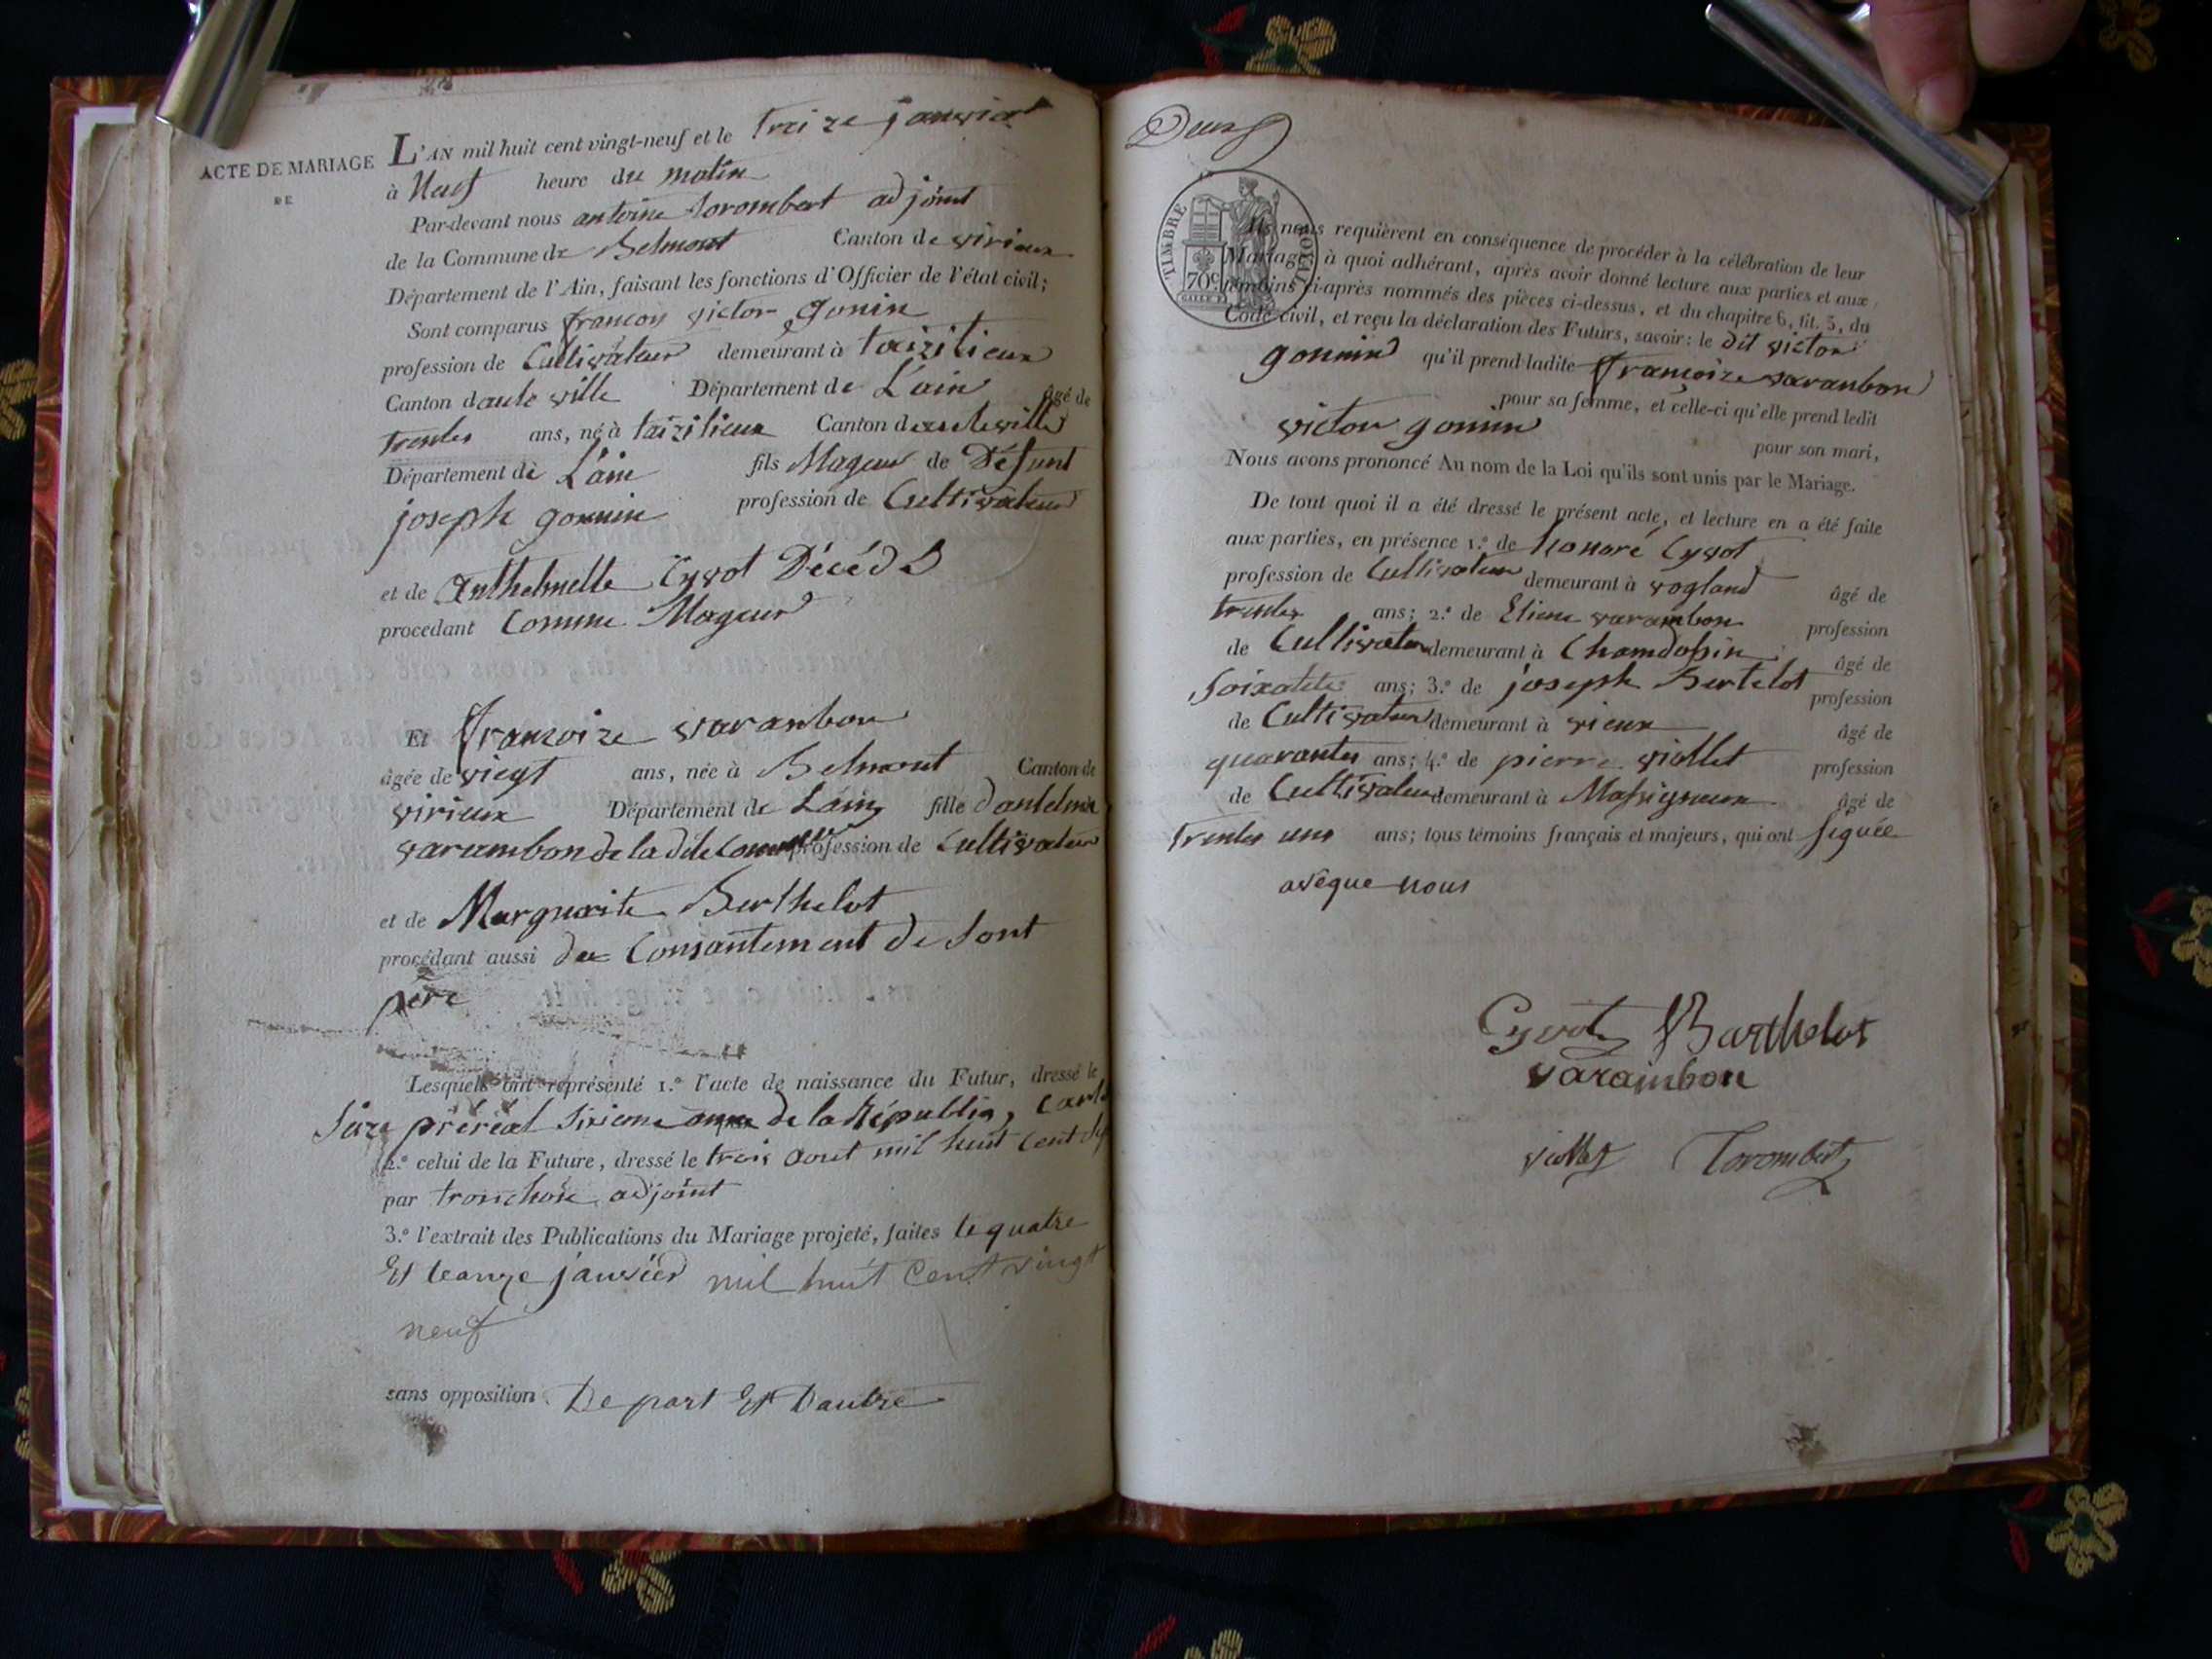 ACTE DE MARIAGE
DE
L'AN mil huit cent vingt-neuf et le treize janvier
à Neuf heure du matin
Par-devant nous antoine torombert adjoint
de la Commune de Belmont Canton de virieux
Département de l'Ain, faisant les fonctions d'Officier de l'état civil;
Sont comparus françois victor gonin
profession de Cultivateur demeurant à taizilieux
Canton daute ville Département de L'ain âgé de
trentes ans, né à taizilieux Canton dauteville
Département de L'ain fils Mageur de Défunt
joseph gonnin profession de Cultivateur
et de Anthelmette Cyvot Décédé
procedant Comme Mageur
Et françoize varanbon
âgée de viegt ans, née à Belmont Canton de
virieux Département de L'ain fille dantelme
varambon de la dite Comune profession de Cultivateur
et de Marguerite Berthelot
procédant aussi du Consantement de sont
père
Lesquels ont représenté 1.° l'acte de naissance du Futur, dressé le
préréal sixieme anne de la Républiq,
2.° celui de la Future, dressé le trois aout mil huit cent
par tronchon adjoint
3.° l'extrait des Publications du Mariage projeté, faites le quatre
Et le onze janvier mil huit cent vingt
neuf
sans opposition De part Et Dautre
Deux
TIMBRE ROYAL
70c
Ils nous requièrent en conséquence de procéder à la célébration de leur
Mariage; à quoi adhérant, après avoir donné lecture aux parties et aux
témoins ci-après nommés des pièces ci-dessus, et du chapitre 6, tit. 5, du
Code civil, et reçu la déclaration des Futurs, savoir: le dit victor
gonnin qu'il prend ladite françoize varanbon
pour sa femme, et celle-ci qu'elle prend ledit
victor gonnin
pour son mari,
Nous avons prononcé Au nom de la Loi qu'ils sont unis par le Mariage.
De tout quoi il a été dressé le présent acte, et lecture en a été faite
aux parties, en présence 1.° de honoré Cyvot
profession de Cultivateur demeurant à vogland âgé de
trentes ans; 2.° de Etiene varambon profession
de Cultivateur demeurant à Chamdossin âgé de
soixante ans; 3.° de joseph Bertelot profession
de Cultivateur demeurant à vieux âgé de
quarantes ans; 4.° de pierre viollet profession
de Cultivateur demeurant à Massigneux âgé de
trentes uns ans; tous témoins français et majeurs, qui ont signée
avèque nous
Cyvot Barthelot
varambon
viollet Torombert